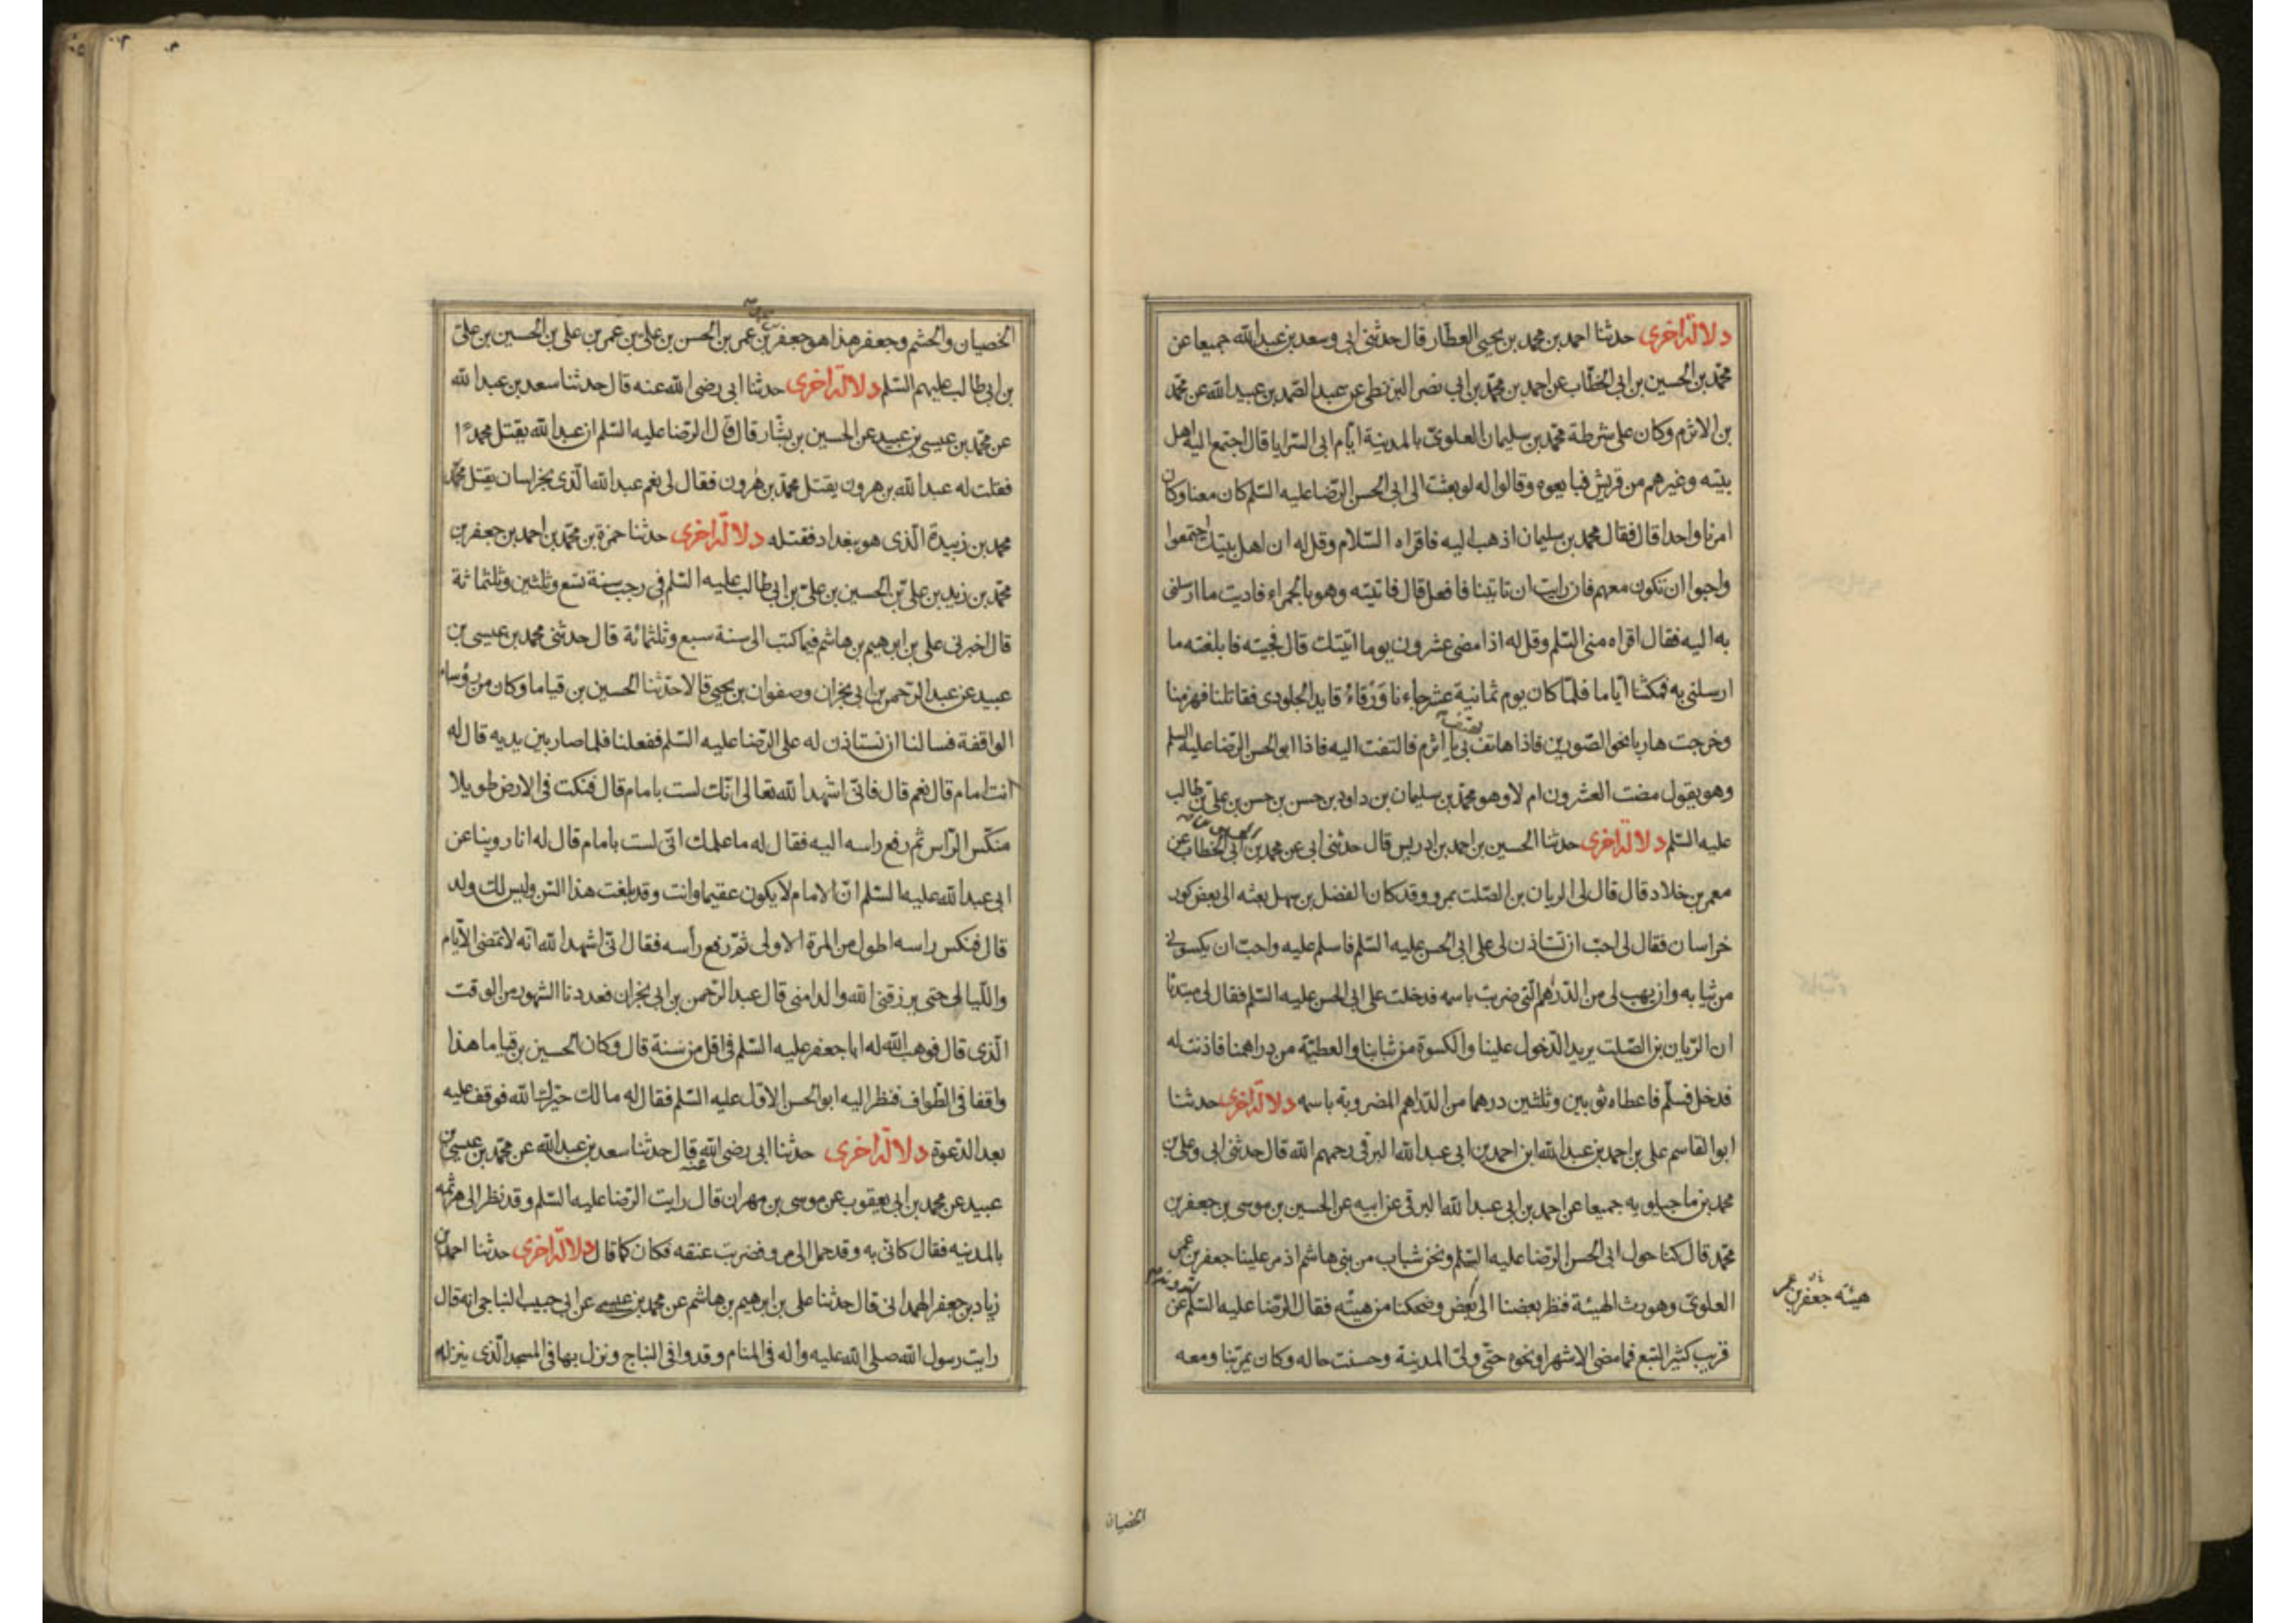 دلالة اخرى حدثنا احمد بن محمد بن يحيى العطار قال حدثنى ابى وسعد بن عبد الله جميعا عن
محمد بن الحسين بن ابى الخطاب عن احمد بن محمد بن ابى نصر البزنطى عن عبد الصمد بن عبيد الله عن محمد
بن الاثرم وكان على شرطة محمد بن سليمان العلوى بالمدينة ايام ابى السرايا قال اجتمع اليه اهل
بيته وغيرهم من قريش فبايعوه وقالوا له لو بعثت الى ابى الحسن الرضا عليه السلم كان معنا وكان
امرنا واحدا قال فقال محمد بن سليمان اذهب اليه فاقراه السلام وقل له ان اهل بيتك اجتمعوا
واحبوا ان تكون معهم فان رايت ان تاتينا فافعل قال فاتيته وهو بالحمراء فاديت ما ارسلنى
به اليه فقال اقراه منى السلم وقل له اذا مضى عشرون يوما اتيتك قال فجيته فابلغته ما
ارسلنى به فمكثنا اياما فلما كان يوم ثمانية عشر جاءنا ورقاء قايد الجلودى فقاتلنا فهزمنا
وخرجت هاربا نحو الصورين فاذا هاتف بى يا اثرم فالتفت اليه فاذا ابو الحسن الرضا عليه السلم
وهو يقول مضت العشرون ام لا وهو محمد بن سليمان بن داود بن حسن بن حسن بن على بن طالب
عليه السلم دلالة اخرى حدثنا الحسين بن احمد بن ادريس قال حدثنى ابى عن محمد بن ابى الخطاب عن
معمر بن خلاد قال قال لى الريان بن الصلت بمرو وقد كان الفضل بن سهل بعثه الى بعض كور
خراسان فقال لى احب ان تستاذن لى على ابى الحسن عليه السلم فاسلم عليه واحب ان يكسونى
من ثيابه وان يهب لى من الدراهم التى ضربت باسمه فدخلت على ابى الحسن عليه السلم فقال لى مبتدئا
ان الريان بن الصلت يريد الدخول علينا والكسوة من ثيابنا والعطية من دراهمنا فاذنت له
فدخل فسلم فاعطاه ثوبين وثلثين درهما من الدراهم المضروبة باسمه دلالة اخرى حدثنا
ابو القاسم على بن احمد بن عبد الله ابن احمد بن ابى عبد الله البرقى رحمهم الله قال حدثنى ابى وعلى بن
محمد بن ماجيلويه جميعا عن احمد بن ابى عبد الله البرقى عن ابيه عن الحسين بن موسى بن جعفر بن
محمد قال كنا حول ابى الحسن الرضا عليه السلم ونحن شباب من بنى هاشم اذ مر علينا جعفر بن عمر
العلوى وهو رث الهيئة فنظر بعضنا الى بعض وضحكنا من هيئه فقال الرضا عليه السلم عن
قريب كثير التبع فما مضى الا شهر او نحوه حتى ولى المدينة وحسنت حاله وكان يمر بنا ومعه
هيئه جعفر بن عمر
الخصيان
الخصيان والحشم وجعفر هذا هو جعفر بن عمر بن الحسن بن على بن عمر بن على بن الحسين بن على
بن ابى طالب عليهم السلم دلالة اخرى حدثنا ابى رضى الله عنه قال حدثنا سعد بن عبد الله
عن محمد بن عيسى بن عبيد عن الحسين بن بشار قال قال الرضا عليه السلم ان عبد الله يقتل محمدا
فقلت له عبد الله بن هرون يقتل محمد بن هرون فقال لى نعم عبد الله الذى بخراسان يقتل محمد
محمد بن زبيدة الذى هو ببغداد فقتله دلالة اخرى حدثنا حمزة بن محمد بن احمد بن جعفر بن
محمد بن زيد بن على بن الحسين بن على بن ابى طالب عليه السلم فى رجب سنة تسع وثلثين وثلثمائة
قال اخبرنى على بن ابرهيم بن هاشم فيما كتب الى سنة سبع وثلثمائة قال حدثنى محمد بن عيسى بن
عبيد عن عبد الرحمن بن ابى نجران وصفوان بن يحيى قالا حدثنا الحسين بن قياما وكان من رؤساء
الواقفة فسالنا ان نستاذن له على الرضا عليه السلم ففعلنا فلما صار بين يديه قال له
انت امام قال نعم قال فانى اشهد الله تعالى انك لست بامام قال فنكت فى الارض طويلا
منكس الرأس ثم رفع راسه اليه فقال له ما علمك انى لست بامام قال له انا روينا عن
ابى عبد الله عليه السلم ان الامام لا يكون عقيما وانت وقد بلغت هذا السن وليس لك ولد
قال فنكس راسه اطول من المرة الاولى ثم رفع رأسه فقال انى اشهد الله انه لا تمضى الايام
والليالى حتى يرزقنى الله ولدا منى قال عبد الرحمن بن ابى نجران فعددنا الشهور من الوقت
الذى قال فوهب الله له ابا جعفر عليه السلم فى اقل من سنة قال وكان الحسين بن قياما هذا
واقفا فى الطواف فنظر اليه ابو الحسن الاول عليه السلم فقال له مالك حيرك الله فوقف عليه
بعد الدعوة دلالة اخرى حدثنا ابى رضى الله عنه قال حدثنا سعد بن عبد الله عن محمد بن عيسى بن
عبيد عن محمد بن ابى يعقوب عن موسى بن مهران قال رايت الرضا عليه السلم وقد نظر الى هرثمه
بالمدينه فقال كانى به وقد حمل الى مرو فضربت عنقه فكان كما قال دلالة اخرى حدثنا احمد بن
زياد بن جعفر الهمدانى قال حدثنا على بن ابرهيم بن هاشم عن محمد بن عيسى عن ابى حبيب النباجى انه قال
رايت رسول الله صلى الله عليه وآله فى المنام وقد وافى النباج ونزل بها فى المسجد الذى ينزله